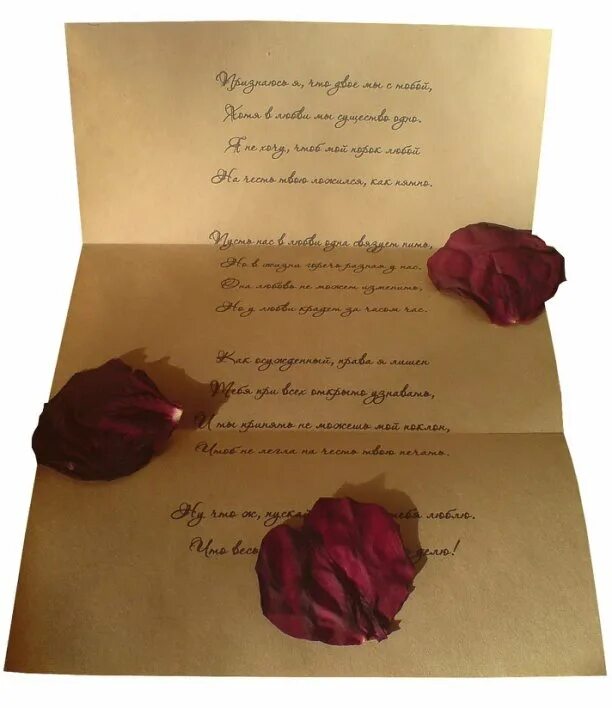 Признаюсь я, что двое мы с тобой,
Хотя в любви мы существо одно.
Я не хочу, чтоб мой порок любой
На честь твою ложился, как пятно.
Пусть нас в любви одна связует нить,
Но в жизни горечь разная у нас.
Она любовь не может изменить,
Но у любви крадет за часом час.
Как осужденный, права я лишен
Тебя при всех открыто узнавать,
И ты принять не можешь мой поклон,
Чтоб не легла на честь твою печать.
Ну что ж, пускай тебя люблю.
Что весь делю!